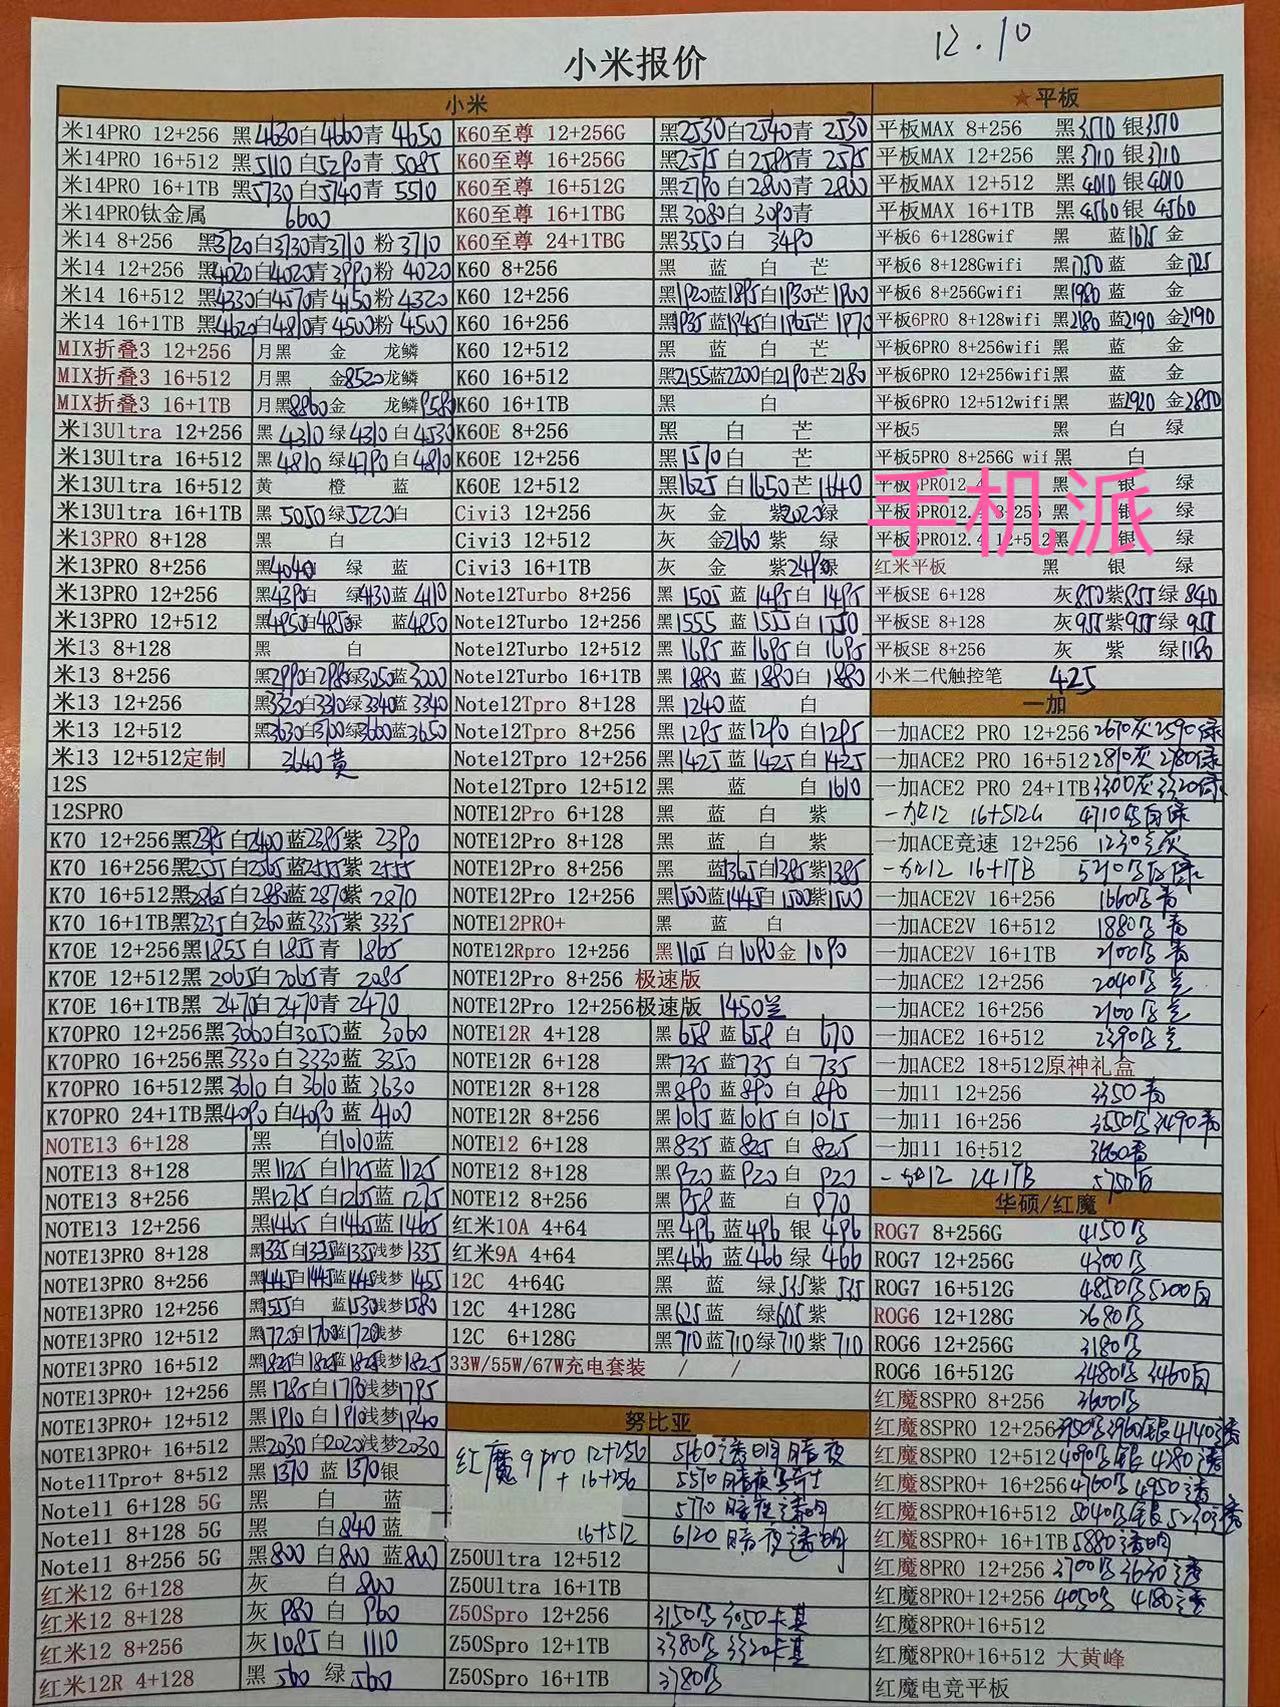 12.10
小米报价
小米
米14PRO 12+256 黑4630白4660青 4650
米14PRO 16+512 黑5110白5290青 5085
米14PRO 16+1TB 黑5730白5740青 5510
米14PRO钛金属 6600
米14 8+256 黑3720白3730青3710 粉3710
米14 12+256 黑4020白4020青3990粉 4020
米14 16+512 黑4330白4570青4150粉 4320
米14 16+1TB 黑4620白4810青4500粉 4500
MIX折叠3 12+256 月黑 金 龙鳞
MIX折叠3 16+512 月黑 金8520龙鳞
MIX折叠3 16+1TB 月黑8860金 龙鳞9580
米13Ultra 12+256 黑 4310 绿4310 白 4530
米13Ultra 16+512 黑 4810 绿4790 白 4810
米13Ultra 16+512 黄 橙 蓝
米13Ultra 16+1TB 黑 5050绿5220白
米13PRO 8+128 黑 白
米13PRO 8+256 黑4040 绿 蓝
米13PRO 12+256 黑4390白 绿4130蓝 4110
米13PRO 12+512 黑4950白4850绿 蓝4850
米13 8+128 黑 白
米13 8+256 黑2990白2980绿3050蓝3000
米13 12+256 黑3320白3310绿3340蓝 3340
米13 12+512 黑3630白3700绿3600蓝3650
米13 12+512定制 3640黄
12S
12SPRO
K70 12+256黑2395白2400蓝2395紫 2390
K70 16+256黑2555白2565蓝2555紫 2555
K70 16+512黑2865白2880蓝2870紫 2870
K70 16+1TB黑3235白3260蓝3335紫 3335
K70E 12+256黑1855白1855青 1865
K70E 12+512黑 2065白2065青 2085
K70E 16+1TB黑 2470白2470青 2470
K70PRO 12+256黑3060白3050蓝 3060
K70PRO 16+256黑3330白3330蓝 3350
K70PRO 16+512黑3610 白3610蓝 3630
K70PRO 24+1TB黑4090 白4090 蓝 4100
NOTE13 6+128 黑 白1010蓝
NOTE13 8+128 黑1125 白1125蓝 1125
NOTE13 8+256 黑1275 白1265蓝 1275
NOTE13 12+256 黑1465 白1465蓝 1465
NOTE13PRO 8+128 黑1335白1335蓝1335浅梦1335
NOTE13PRO 8+256 黑1445白1445蓝1445浅梦 1455
NOTE13PRO 12+256 黑1555白 蓝1530浅梦1580
NOTE13PRO 12+512 黑1720白1760蓝1720浅梦
NOTE13PRO 16+512 黑1825白1825蓝1825浅梦1825
NOTE13PRO+ 12+256 黑1785白1790浅梦1795
NOTE13PRO+ 12+512 黑1910 白1910浅梦1940
NOTE13PRO+ 16+512 黑2030 白2020浅梦2030
Note11Tpro+ 8+512 黑1370 蓝1370银
Note11 6+128 5G 黑 白 蓝
Note11 8+128 5G 黑 白840 蓝
Note11 8+256 5G 黑800 白800 蓝800
红米12 6+128 灰 白 800
红米12 8+128 灰 980 白 960
红米12 8+256 灰1085白 1110
红米12R 4+128 黑 560 绿 560
K60至尊 12+256G 黑2530白2540青 2530
K60至尊 16+256G 黑2575 白2585青 2575
K60至尊 16+512G 黑2790 白2800青 2800
K60至尊 16+1TBG 黑3080白 3090青
K60至尊 24+1TBG 黑3550白 3490
K60 8+256 黑 蓝 白 芒
K60 12+256 黑1920蓝1895白1930芒1900
K60 16+256 黑1935 蓝1945白1965芒1970
K60 12+512 黑 蓝 白 芒
K60 16+512 黑2155蓝2200白2190芒2180
K60 16+1TB 黑 白
K60E 8+256 黑 白 芒
K60E 12+256 黑1510白 芒
K60E 12+512 黑1625 白1650芒1640
Civi3 12+256 灰 金 紫2020绿
Civi3 12+512 灰 金2160 紫 绿
Civi3 16+1TB 灰 金 紫2490绿
Note12Turbo 8+256 黑 1505 蓝 1495白 1495
Note12Turbo 12+256 黑1555 蓝 1555白 1550
Note12Turbo 12+512 黑 1695 蓝1695白 1695
Note12Turbo 16+1TB 黑 1880蓝 1880白 1880
Note12Tpro 8+128 黑 1240蓝 白
Note12Tpro 8+256 黑 1295蓝 1290 白1295
Note12Tpro 12+256 黑1425 蓝1425白1425
Note12Tpro 12+512 黑 蓝 白1610
NOTE12Pro 6+128 黑 蓝 白 紫
NOTE12Pro 8+128 黑 蓝 白 紫
NOTE12Pro 8+256 黑 蓝1365白1385紫1385
NOTE12Pro 12+256 黑1500蓝1445白1500紫1500
NOTE12PRO+ 黑 蓝 白
NOTE12Rpro 12+256 黑1105 白1090金 1090
NOTE12Pro 8+256 极速版
NOTE12Pro 12+256极速版 1450兰
NOTE12R 4+128 黑658 蓝658 白 670
NOTE12R 6+128 黑735 蓝735 白 735
NOTE12R 8+128 黑890 蓝890 白 890
NOTE12R 8+256 黑1015 蓝1015白 1015
NOTE12 6+128 黑835 蓝825 白 825
NOTE12 8+128 黑920 蓝920 白 920
NOTE12 8+256 黑958 蓝 白 970
红米10A 4+64 黑496 蓝496 银 496
红米9A 4+64 黑466 蓝466 绿 466
12C 4+64G 黑 蓝 绿535紫 535
12C 4+128G 黑625蓝 绿605紫
12C 6+128G 黑710蓝710绿 710紫 710
33W/55W/67W充电套装 / /
努比亚
红魔9pro 12+256 5460透明暗夜
+ 16+256 5570暗夜骑士
5770 暗夜透明
16+512 6120 暗夜透明
Z50Ultra 12+512
Z50Ultra 16+1TB
Z50Spro 12+256 3150黑 3050卡其
Z50Spro 12+1TB 3380黑 3320卡其
Z50Spro 16+1TB 3780黑
★平板
平板MAX 8+256 黑3510 银3510
平板MAX 12+256 黑3710 银3710
平板MAX 12+512 黑4010 银4010
平板MAX 16+1TB 黑4560银 4560
平板6 6+128Gwif 黑 蓝1675 金
平板6 8+128Gwifi 黑1750蓝 金1725
平板6 8+256Gwifi 黑1980蓝 金
平板6PRO 8+128wifi 黑2180 蓝2190 金2190
平板6PRO 8+256wifi 黑 蓝 金
平板6PRO 12+256wifi黑 蓝 金
平板6PRO 12+512wifi黑 蓝2920 金2850
平板5 黑 白 绿
平板5PRO 8+256G wif 黑 白
平板5PRO12.4 黑 银 绿
平板5PRO12.4 8+256 黑 银 绿
平板5PRO12.4 12+512黑 银 绿
手机派
红米平板 黑 银 绿
平板SE 6+128 灰850紫855绿 840
平板SE 8+128 灰955紫955绿 955
平板SE 8+256 灰 紫 绿1180
小米二代触控笔 425
一加
一加ACE2 PRO 12+256 2670灰2590绿
一加ACE2 PRO 16+512 2810灰 2780绿
一加ACE2 PRO 24+1TB 3300灰3320绿
一加12 16+512G 4710黑白绿
一加ACE竞速 12+256 1230灰
一加12 16+1TB 5210黑白绿
一加ACE2V 16+256 1660黑青
一加ACE2V 16+512 1880黑青
一加ACE2V 16+1TB 2100黑青
一加ACE2 12+256 2040黑兰
一加ACE2 16+256 2100黑兰
一加ACE2 16+512 2390兰
一加ACE2 18+512原神礼盒
一加11 12+256 3350青
一加11 16+256 3550黑3490青
一加11 16+512 3660青
一加12 24+1TB 5750白
华硕/红魔
ROG7 8+256G 4150黑
ROG7 12+256G 4300黑
ROG7 16+512G 4850黑5200白
ROG6 12+128G 2680黑
ROG6 12+256G 3180黑
ROG6 16+512G 3480黑 3460白
红魔8SPRO 8+256 3600黑
红魔8SPRO 12+256 3950黑3960银4140透
红魔8SPRO 12+512 4090黑银 4280透
红魔8SPRO+ 16+256 4760黑 4950透
红魔8SPRO+16+512 5040黑银5230透
红魔8SPRO+ 16+1TB5880透明
红魔8PRO 12+256 3700黑 3630透
红魔8PRO+12+256 4050黑 4180透
红魔8PRO+16+512
红魔8PRO+16+512 大黄峰
红魔电竞平板